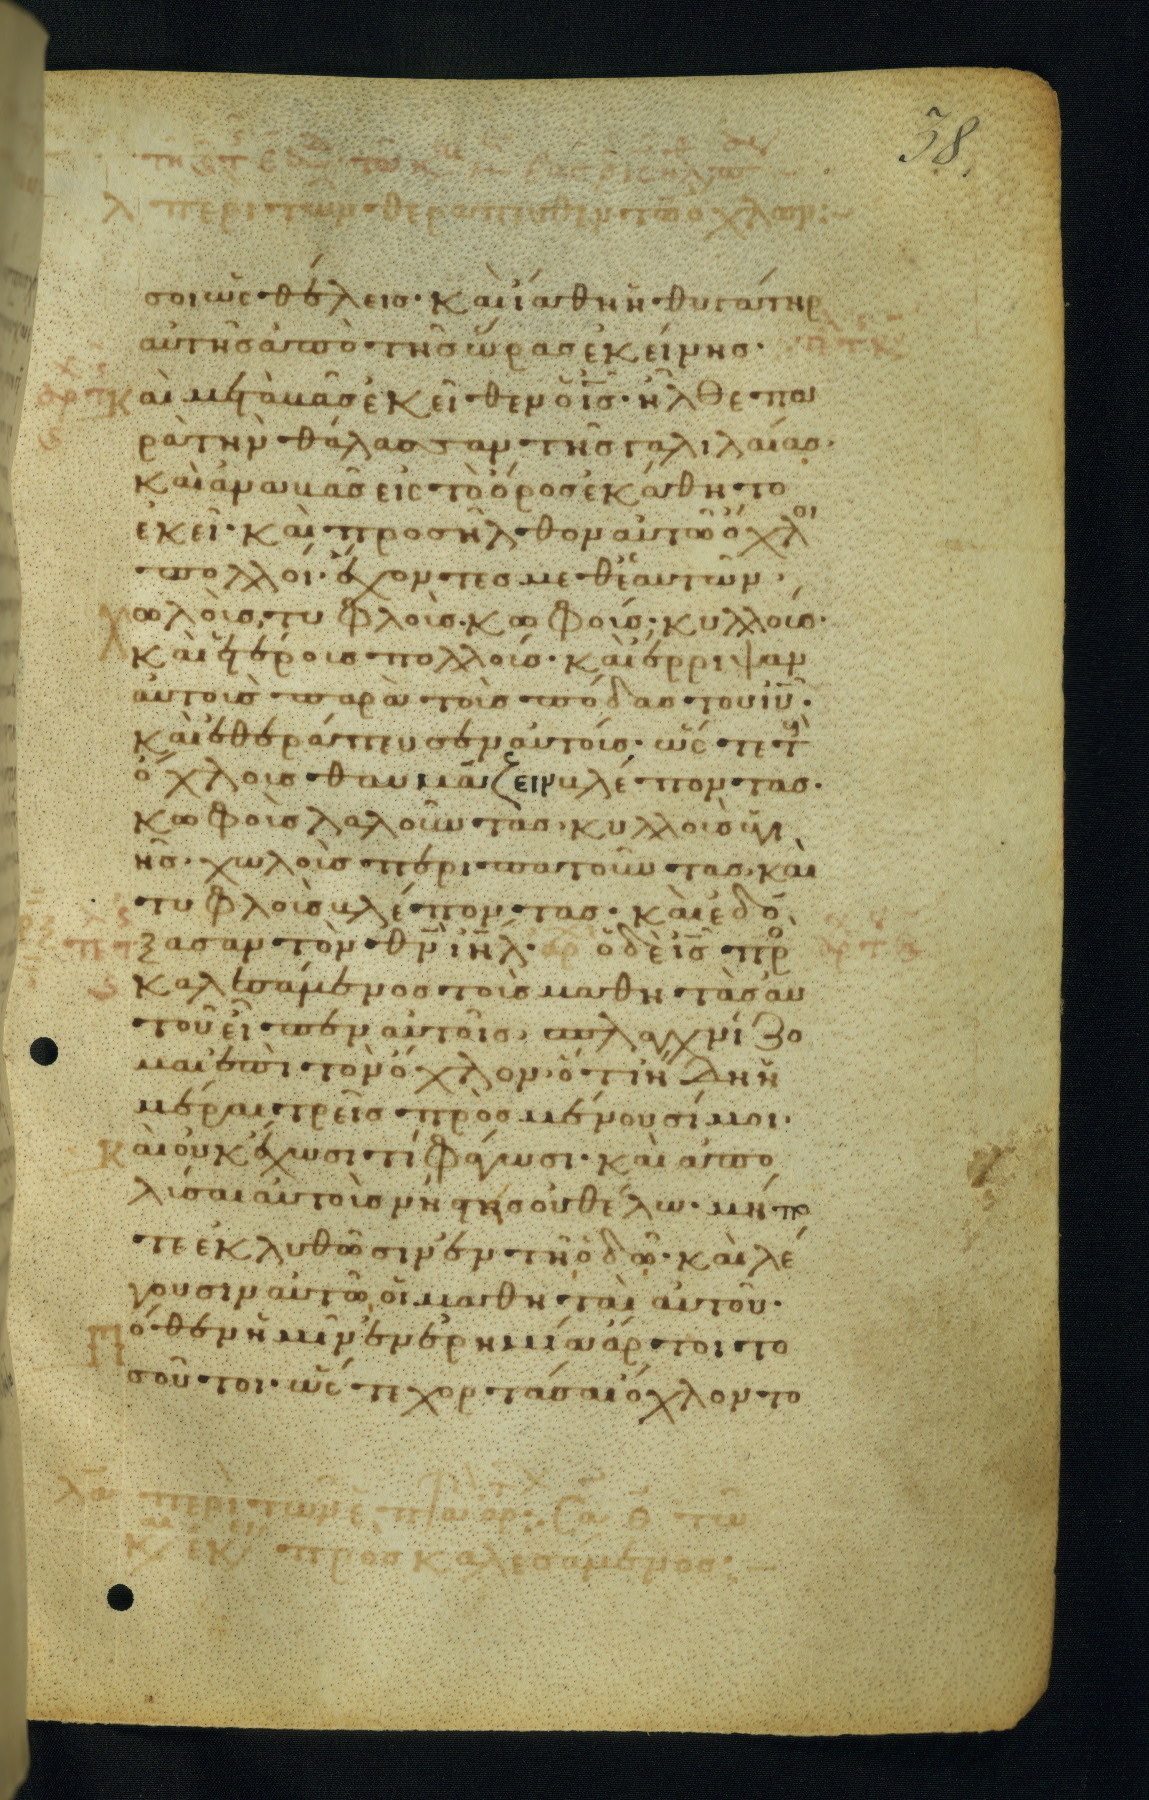 38
λ περι των θεραπευθεντων οχλων:~
σοι ὡς θέλεις· καὶ ἰάθη ἡ θυγάτηρ
αὐτῆς ἀπὸ τῆς ὥρας ἐκείνης·
αὶ μεταβὰς ἐκεῖθεν ὁ ις ἦλθε πα
ρὰ τὴν θάλασσαν τῆς γαλιλαίας·
καὶ ἀναβὰς εἰς τὸ ὄρος ἐκάθητο
ἐκεῖ· καὶ προσῆλθον αὐτῶ ὄχλοι
πολλοί· ἔχοντες μεθ ἑαυτῶν·
χωλοὺς, τυφλοὺς· κωφούς· κυλλούς·
καὶ ἑτέρους πολλούς· καὶ ἔρριψαν
αὐτοὺς παρὰ τοὺς πόδας του ιυ·
καὶ ἐθεράπευσεν αὐτούς· ὥς τε τοὺς
ὄχλους θαυμάζειν βλέποντας·
κωφοὺς λαλοῦντας· κυλλοὺς ὑγι
ῆς· χωλοὺς περιπατοῦντας, καὶ
τυφλοὺς βλέποντας· καὶ ἐδό
ξασαν τὸν θν ιηλ· ὁ δὲ ις προ
καλεσάμενος τοὺς μαθητὰς αυ
τοῦ εἶπεν αὐτοῖς, σπλαγχνίζο
μαι ἐπὶ τὸν ὄχλον, ὅτι ἤδη ἡ
μέραι τρεῖς προσμένουσί μοι·
καὶ οὐκ ἔχωσι τί φάγωσι· καὶ ἀπο
λῦσαι αὐτοὺς νήστης οὐ θέλω· μή πο
τε ἐκλυθῶσιν ἐν τῆ ὁδῶ· καὶ λέ
γουσιν αὐτῶ οἱ μαθηταὶ αὐτοῦ·
πόθεν ἡμῖν ἐν ἐρημία ἄρτοι το
σοῦτοι· ὥς τε χορτάσαι ὄχλον το
προσκαλεσάμενος:~